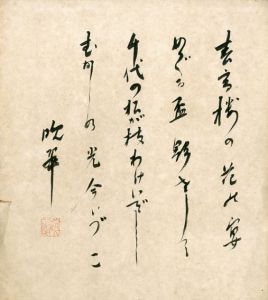 春高楼の花の宴
めぐる盃影さして
千代の松が枝わけいでし
むかしの光今いづこ
晩翠